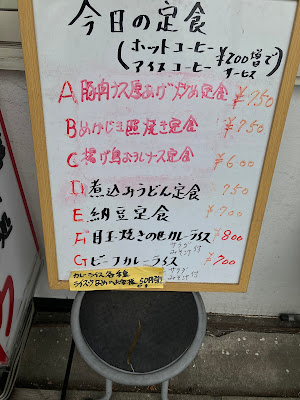 今日の定食
(ホットコーヒー
アイスコーヒー ¥200増で
サービス)
A 豚肉ナス厚あげ 定食 ¥750
Bめかじき照焼き定食 ¥750
C 揚げ鳥おろしナス定食 ¥600
D 煮込みうどん定食 750
E 納豆定食 ¥700
F 目玉焼きのせカレーライス ¥800
サラダ
みそ汁付
G ビーフカレーライス ¥700
サラダ
みそ汁付
カレーライス各種
ライス少なめ 50円引